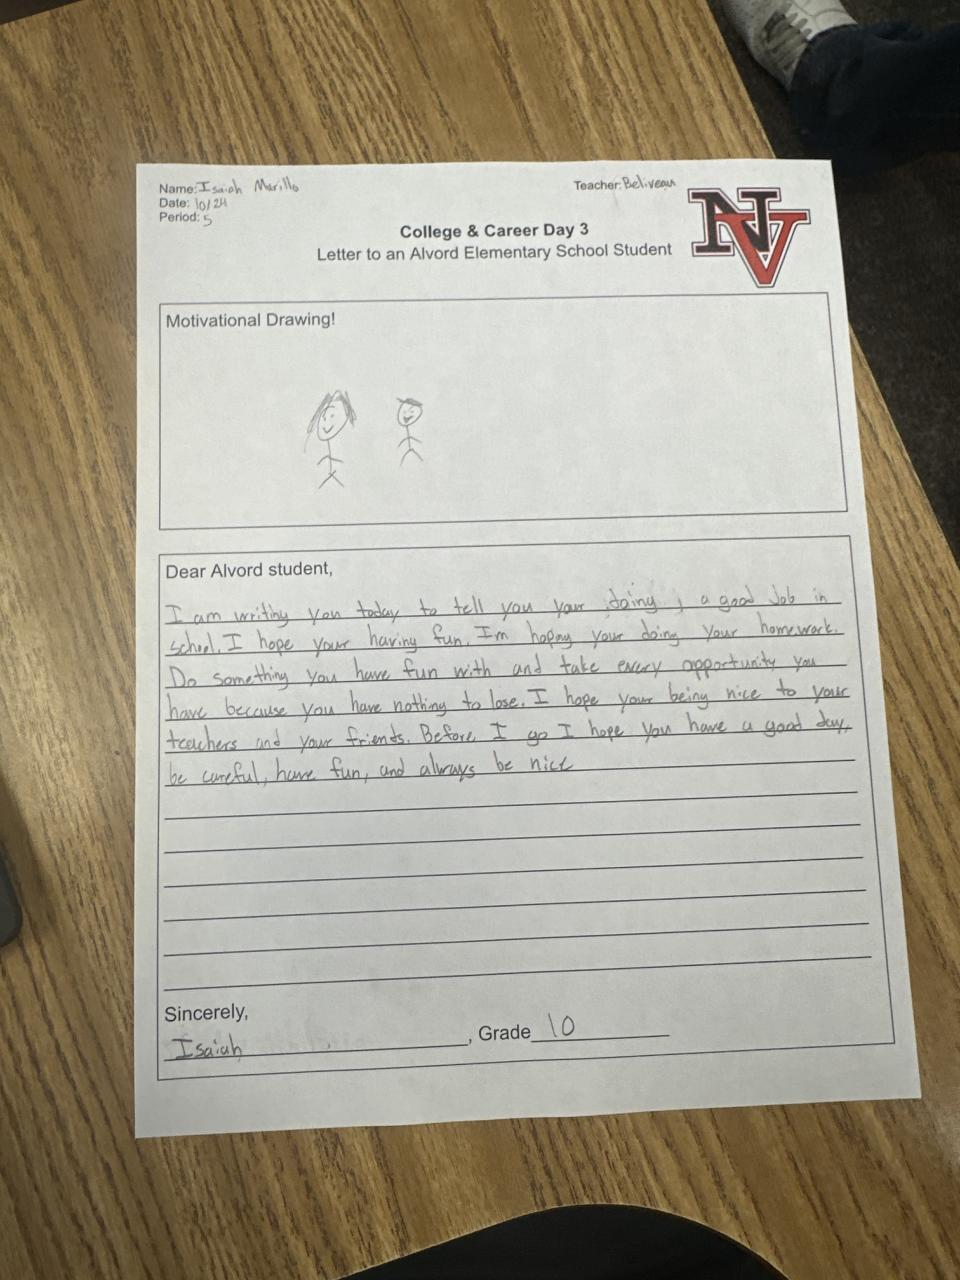 Name: Isaiah Murillo
Teacher: Beliveau
Date: 10/24
Period: 5
NV
College & Career Day 3
Letter to an Alvord Elementary School Student
Motivational Drawing!
Dear Alvord student,
I am writing you today to tell you your doing a good Job in
school. I hope your having fun. Im hoping your doing your homework.
Do something you have fun with and take every opportunity you
have because you have nothing to lose. I hope your being nice to your
teachers and your friends. Before I go I hope you have a good day,
be careful, have fun, and always be nice
Sincerely,
Isaiah, Grade 10